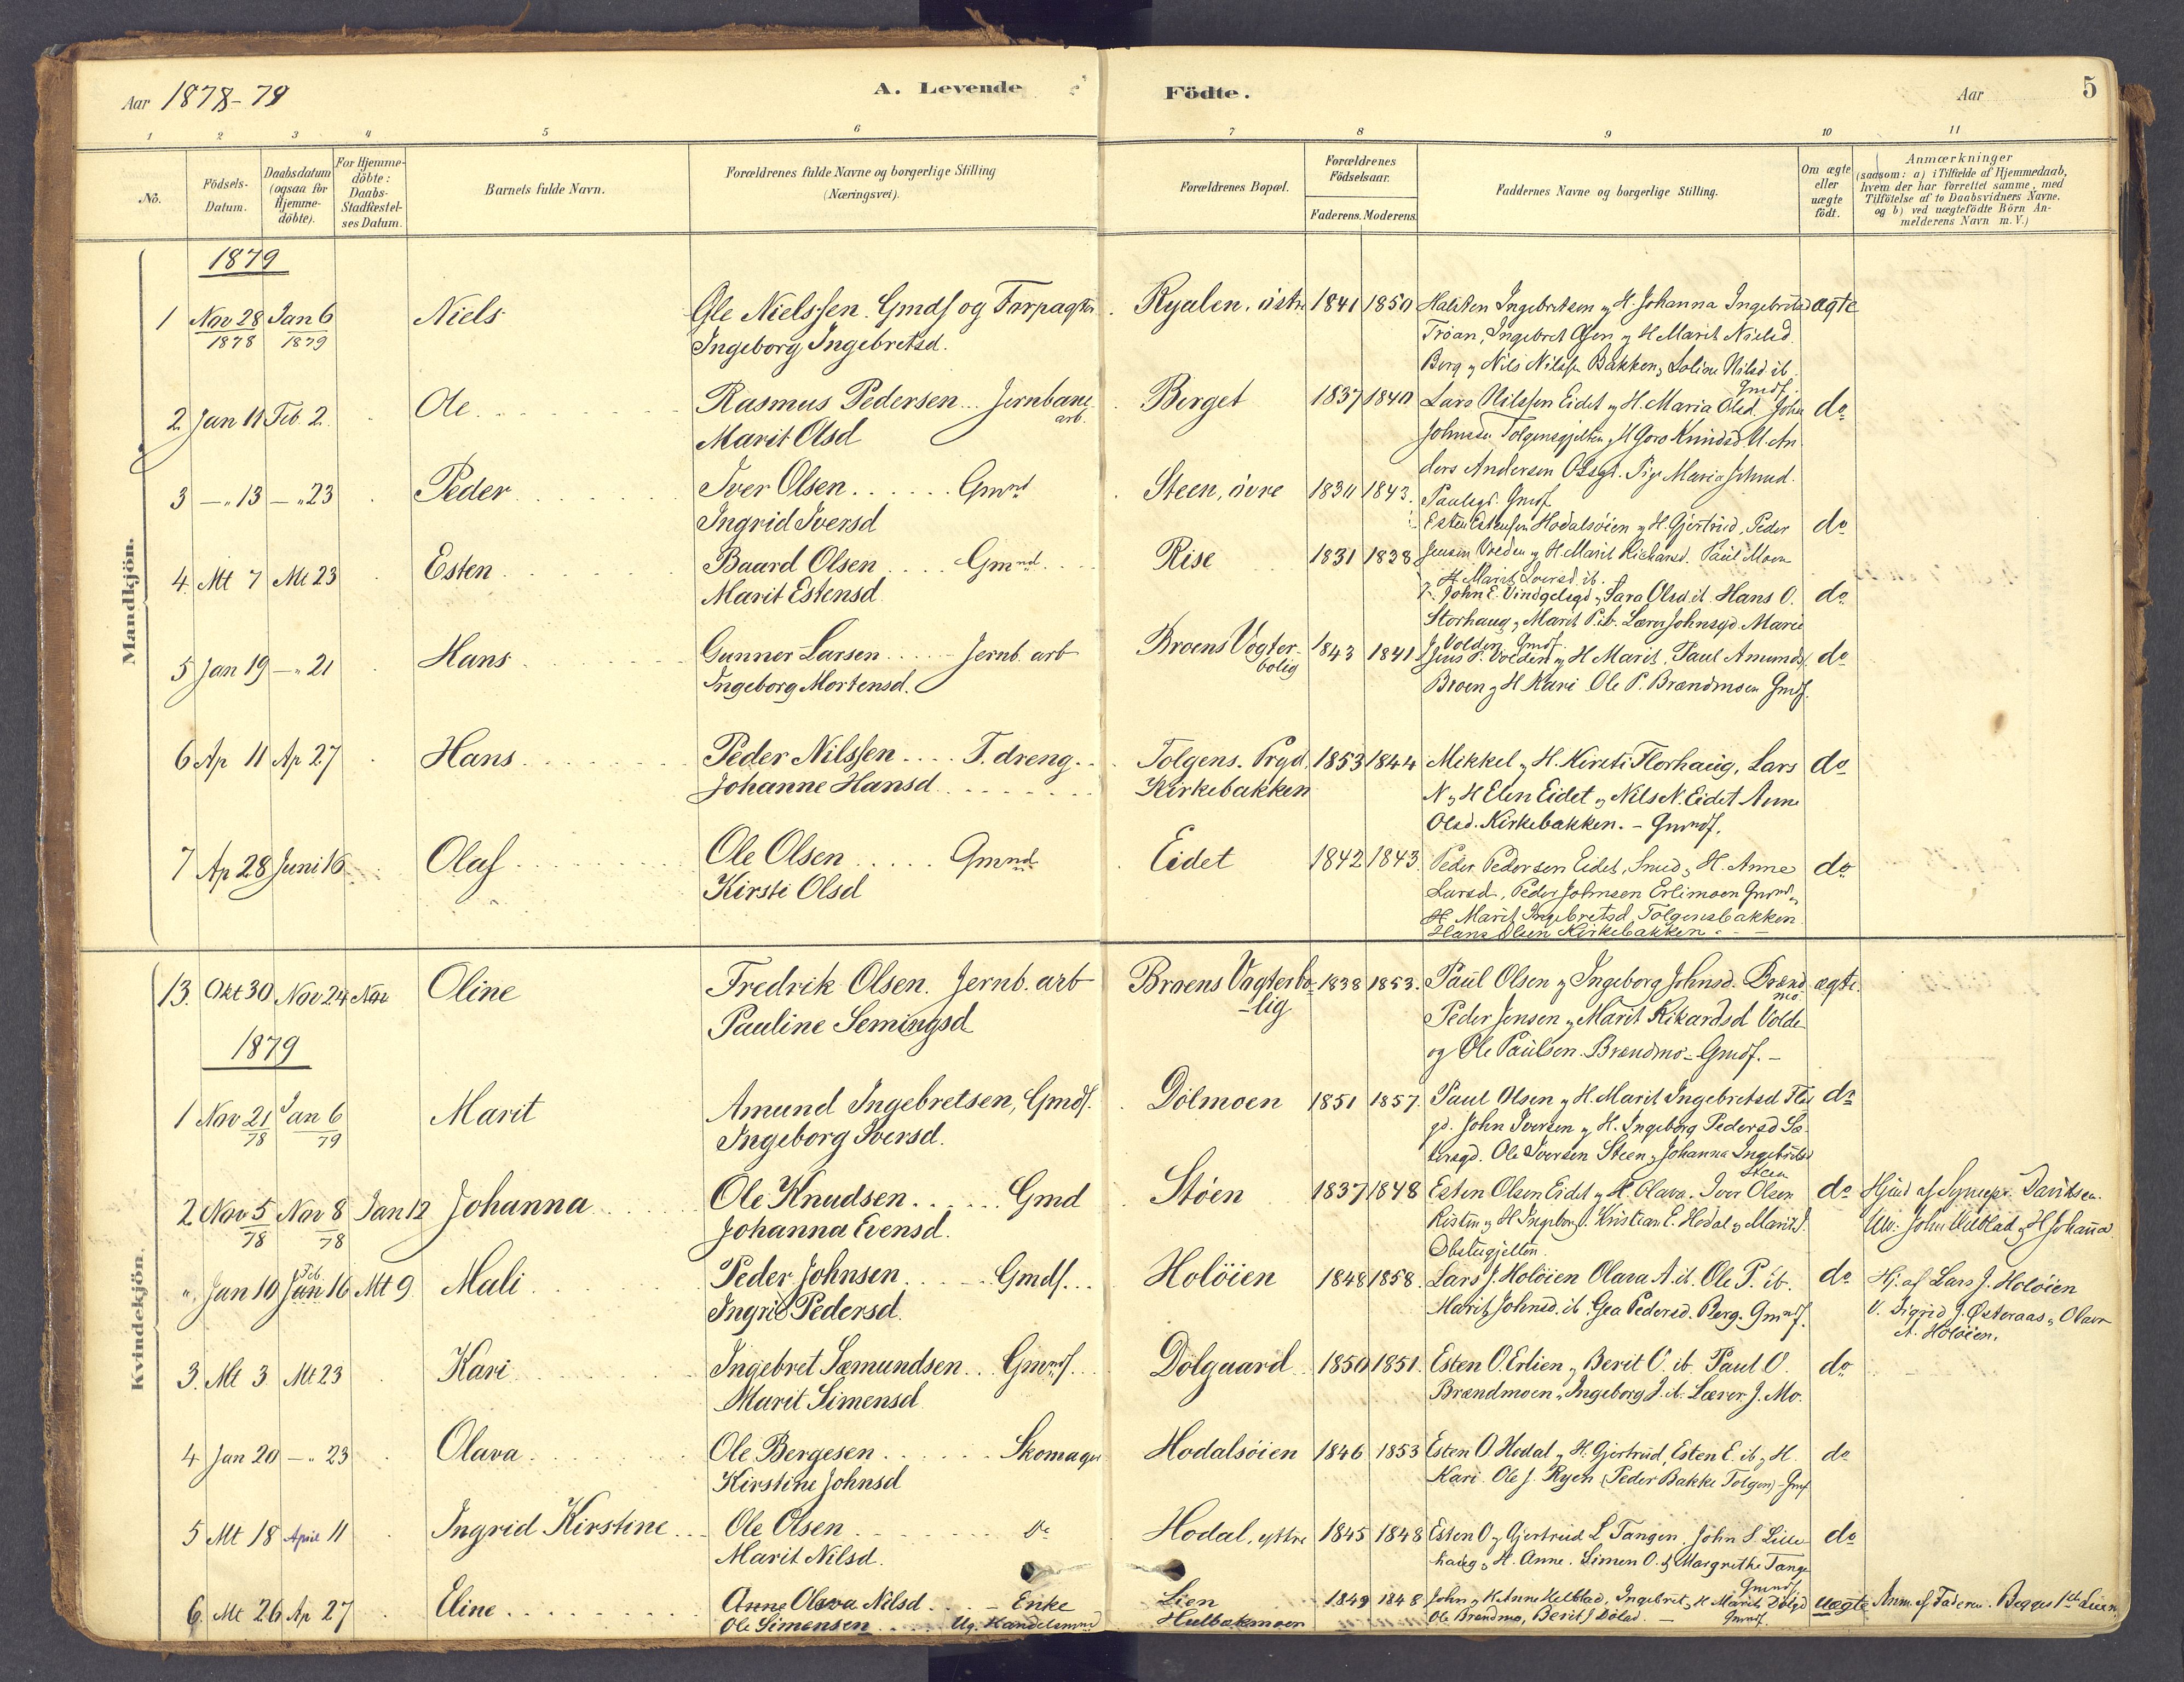 Aar 1878-79
A. Levende Födte.
Aar
5
1 2 3 4 5 6 7 8 9 10 11
No.
Födsels-Datum.
Daabsdatum (ogsaa for Hjemme-döbte).
For Hjemme-döbte: Daabs-Stadfæstel-ses Datum.
Barnets fulde Navn.
Forældrenes fulde Navne og borgerlige Stilling (Næringsvei).
Forældrenes Bopæl.
Forældrenes Födselsaar.
Faderens. Moderens.
Faddernes Navne og borgerlige Stilling.
Om ægte eller uægte født.
Anmærkninger
(saasom: a) i Tilfælde af Hjemmedaab,
hvem der har forrettet samme, med
Tilföielse af to Daabsvidners Navne.
og b) ved uægtefödte Börn An-
melderens Navn m. V.)
Mandkjön.
1879
1 Nov 28 1878 Jan 6 1879 Niels Ole Nielssen. Gmds og Forpagter Ryalen, östre 1841 1850 Halsten Ingebretsen og H. Johanna Ingebretsd ægte
Ingeborg Ingebretsd. Tröan, Ingebret Olsen og H Marit Nielsd.
Berg og Nils Nilssen Bakken, Solien Nilsd ib. Gmdf.
2 Jan 11 Feb. 2. Ole Rasmus Pedersen Jernbane arb. Berget 1837 1840 Lars Nilssen Eidet og H. Maria Olsd. John do
Marit Olsd Johnsen Tolgensgjelten og H Goro Knudsd U. An
ders Andersen
3 —"13 —"23 Peder Iver Olsen Gmnd Steen, övre 1843. Gmdf
Ingrid Iversd Esten Estensen Hodalsöien og H. Gjertrud, Peder do
4. Mt 7 Mt 23 Esten Baard Olsen Gmnd Rise 1831 1838 Jensen Volden og H. Marit Rickarsd. Paul Moen
Marit Estensd og H Marit Iversd. ib.
John E. Vindgelsgd og Sara Olsd. ib. Hans O. do
Storhaug og Marit P. ib. Lærer Johnsgd. Marie
Volden. Gmdf.
5 Jan 19 —"21 Hans Gunner Larsen Jernb. arb Broens Vogter-bolig 1843 1841 Jens P. Volden og H Marit, Paul Amunds. do
Ingeborg Mortensd. Broen og H Kari Ole P. Brændmoen Gmdf.
6 Ap 11 Ap 27 Hans Peder Nilssen T. dreng Tolgens. Prgd. 1853 1844 Mikkel og H. Kirsti Florhaug, Lars do
Johanne Hansd Kirkebakken N og H Elen Eidet og Nils N. Eidet Anne
Olsd. Kirkebakken. - Gmndf.
7 Ap 28 Juni 16 Olaf Ole Olsen Gmnd Eidet 1842 1843. Peder Pedersen Eidet, Smed og H. Anne do
Kirsti Olsd Larsd., Peder Johnsen Erlimoen Gmnd og
H Marit Ingebretsd Tolgensbakken.
Hans Olsen Kirkebakken
Kvindekjön.
13. Okt 30 Nov 24 Nov Oline Fredrik Olsen. Jernb. arb Broens Vogterbo-lig 1838 1853. Paul Olsen og Ingeborg Johnsd. Brændmo ægte.
Pauline Semingsd Peder Jensen og Marit Rikardsd Volde
og Ole Paulsen. Brændmo - Gmdf. -
1879
1 Nov 21 78 Jan 6 79 Marit Amund Ingebretsen, Gmdf. Dölmoen 1851 1857. Paul Olsen og H. Marit Ingebretsd do
Ingeborg Iversd. gd. John Iversen og H. Ingeborg Pedersd Sæ-
tersgd. Ole Iversen Steen og Johanna Ingebretsd Steen
2 Nov 5 78 Nov 8 78 Jan 12 Johanna Ole Knudsen Gmd Stöen 1837 1848 Esten Olsen Eidet og H. Olava. Iver Olsen do
Johanna Evensd. og H Ingeborg J. Kristian E. Hodal og Marit J. John Velblad og H Johanna
" Jan 10 Feb. Jan 16 Mt 9 Mali Peder Johnsen Gmdf. Holöien 1848 1858. Lars J. Holöien Olava A. ib. Ole P. ib. do Hj. af Lars J. Holöien
Ingrid Pedersd. Marit Johnsd. ib. Gea Pedersd. Berg. Gmndf. V. Sigrid J. Østeraas og Olava
A. Holöien.
3. Mt 3 Mt 23 Kari Ingebret Sæmundsen Gmndf. Dölgaard 1850 1851. Esten O. Erlien og Berit O. ib. Paul O. do
Marit Simensd Brændmoen og Ingeborg J. ib. Lærer J. Mo.
4 Jan 20 —"23 Olava Ole Bergesen Skomager Hodalsöien 1846 1853 Esten O. Hodal og H. Gjertrud, Esten E. ib. og H. do
Kirstine Johnsd Kari. Ole J. Ryen (Peder Bakke Tolgen) - Gmf
5 Mt 18 April 11 Ingrid Kirstine Ole Olsen do Hodal, yttre 1845 1848 Esten O og Gjertrud L Tangen. John S. Lille do
Marit Nilsd. haug og H. Anne. Simen O. og Margrethe Tange
Gmndf.
6. Mt 26 Ap 27 Eline Anne Olava Nilsd Enke Lien 1849 1848 John og H Anne Velblad, Ingebret og H Marit Dölgd uægte Anm. af Faderen. Begges 1ste Leierm.
Ole Simensen Ug. Handelsmnd Hulbakmoen Ole Brændmo, Berit J Dölgd. — Gmndf.